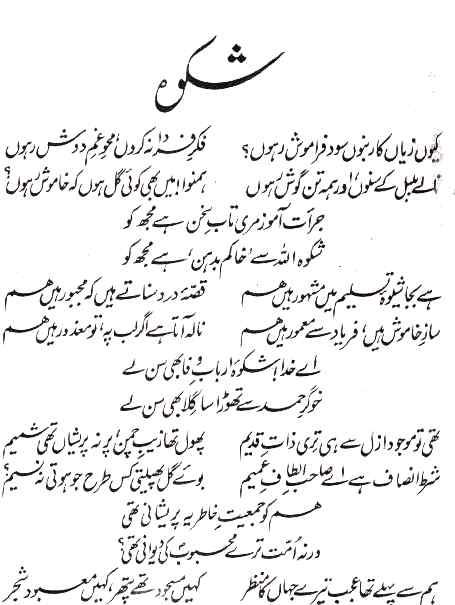 شکوہ
کیوں زیاں کار بنوں، سود فراموش رہوں؟ فکرِ فردا نہ کروں، محوِ غمِ دوش رہوں
نالے بلبل کے سنوں، اور ہمہ تن گوش رہوں ہمنوا! میں بھی کوئی گل ہوں کہ خاموش رہوں؟
جرأت آموز مری تابِ سخن ہے مجھ کو
شکوہ اللہ سے ’خاکم بدہن‘ ہے مجھ کو
ہے بجا شیوۂ تسلیم میں مشہور ہیں ہم قصۂ درد سناتے ہیں کہ مجبور ہیں ہم
سازِ خاموش ہیں، فریاد سے معمور ہیں ہم نالہ آتا ہے اگر لب پہ، تو معذور ہیں ہم
اے خدا! شکوۂ اربابِ وفا بھی سن لے
خوگرِ حمد سے تھوڑا سا گلا بھی سن لے
تھی تو موجود ازل سے ہی تری ذاتِ قدیم پھول تھا زیبِ چمن، پر نہ پریشاں تھی شمیم
شرط انصاف ہے اے صاحبِ الطافِ عمیم بوئے گل پھیلتی کس طرح جو ہوتی نہ نسیم؟
ہم کو جمعیتِ خاطر یہ پریشانی تھی
ورنہ امّت ترے محبوبؐ کی دیوانی تھی؟
ہم سے پہلے تھا عجب تیرے جہاں کا منظر کہیں مسجود تھے پتھر، کہیں معبود شجر